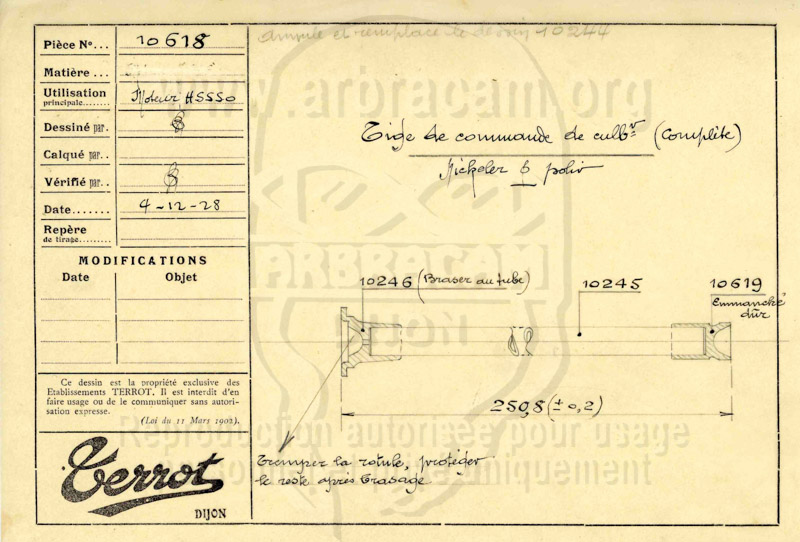 Pièce N°... 10618
Matière ...
Utilisation
principale........ Moteur HSSSO
Dessiné par.
Calqué par..
Vérifié par..
Date....... 4-12-28
Repère
de tirage.........
MODIFICATIONS
Date Objet
Ce dessin est la propriété exclusive des
Etablissements TERROT. Il est interdit d'en
faire usage ou de le communiquer sans autori-
sation expresse.
(Loi du 11 Mars 1902).
Terrot
DIJON
annule et remplace le dessin 10244
www.arbracam.org
Tige de commande de culbr (complète)
Nickeler & polir
ARBRACAM
DIJON
10246 (Braser au tube)
10245
10619
Emmanché
dûr
250,8 (± 0,2)
Tremper la rotule, protéger
le reste après brasage
Reproduction autorisée pour usage
personnel uniquement